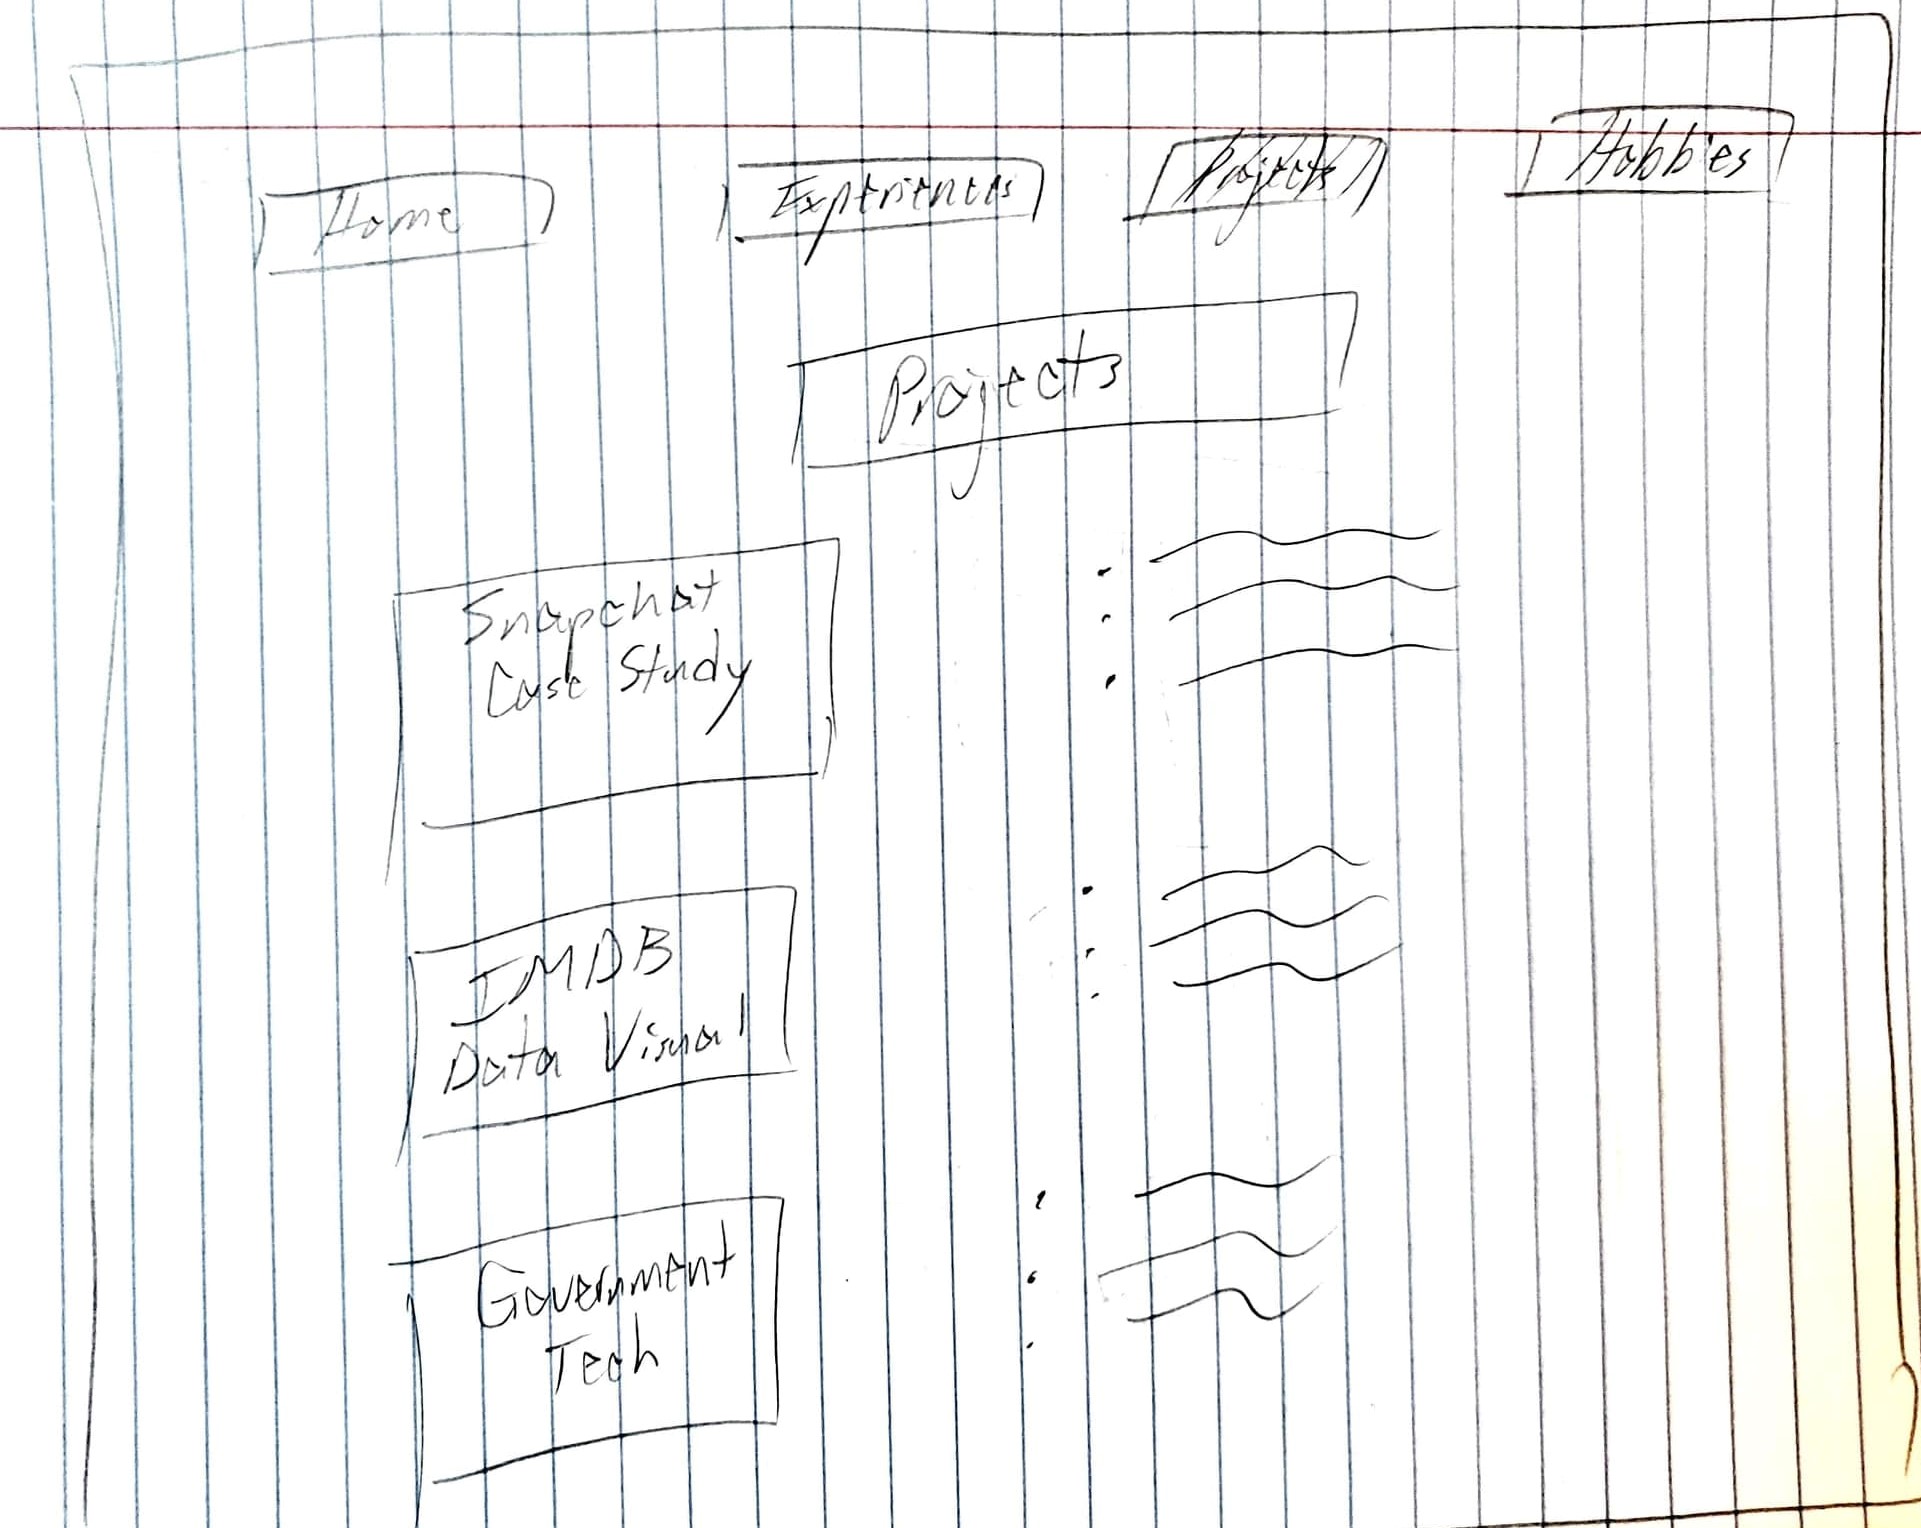 Home
Experiences
Projects
Hobbies
Projects
Snapchat
Case Study
IMDB
Data Visual
Government
Tech